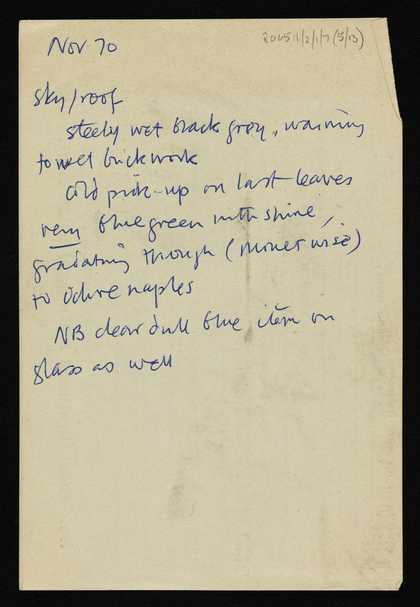 Nov 70
2005/1/2/1/7 (5/13)
sky/roof
steely wet black grey, warming
to wet brickwork
cold pick-up on last leaves
very blue green with shine,
gradating through (monet wise)
to ochre naples
NB clear dull blue item on
glass as well